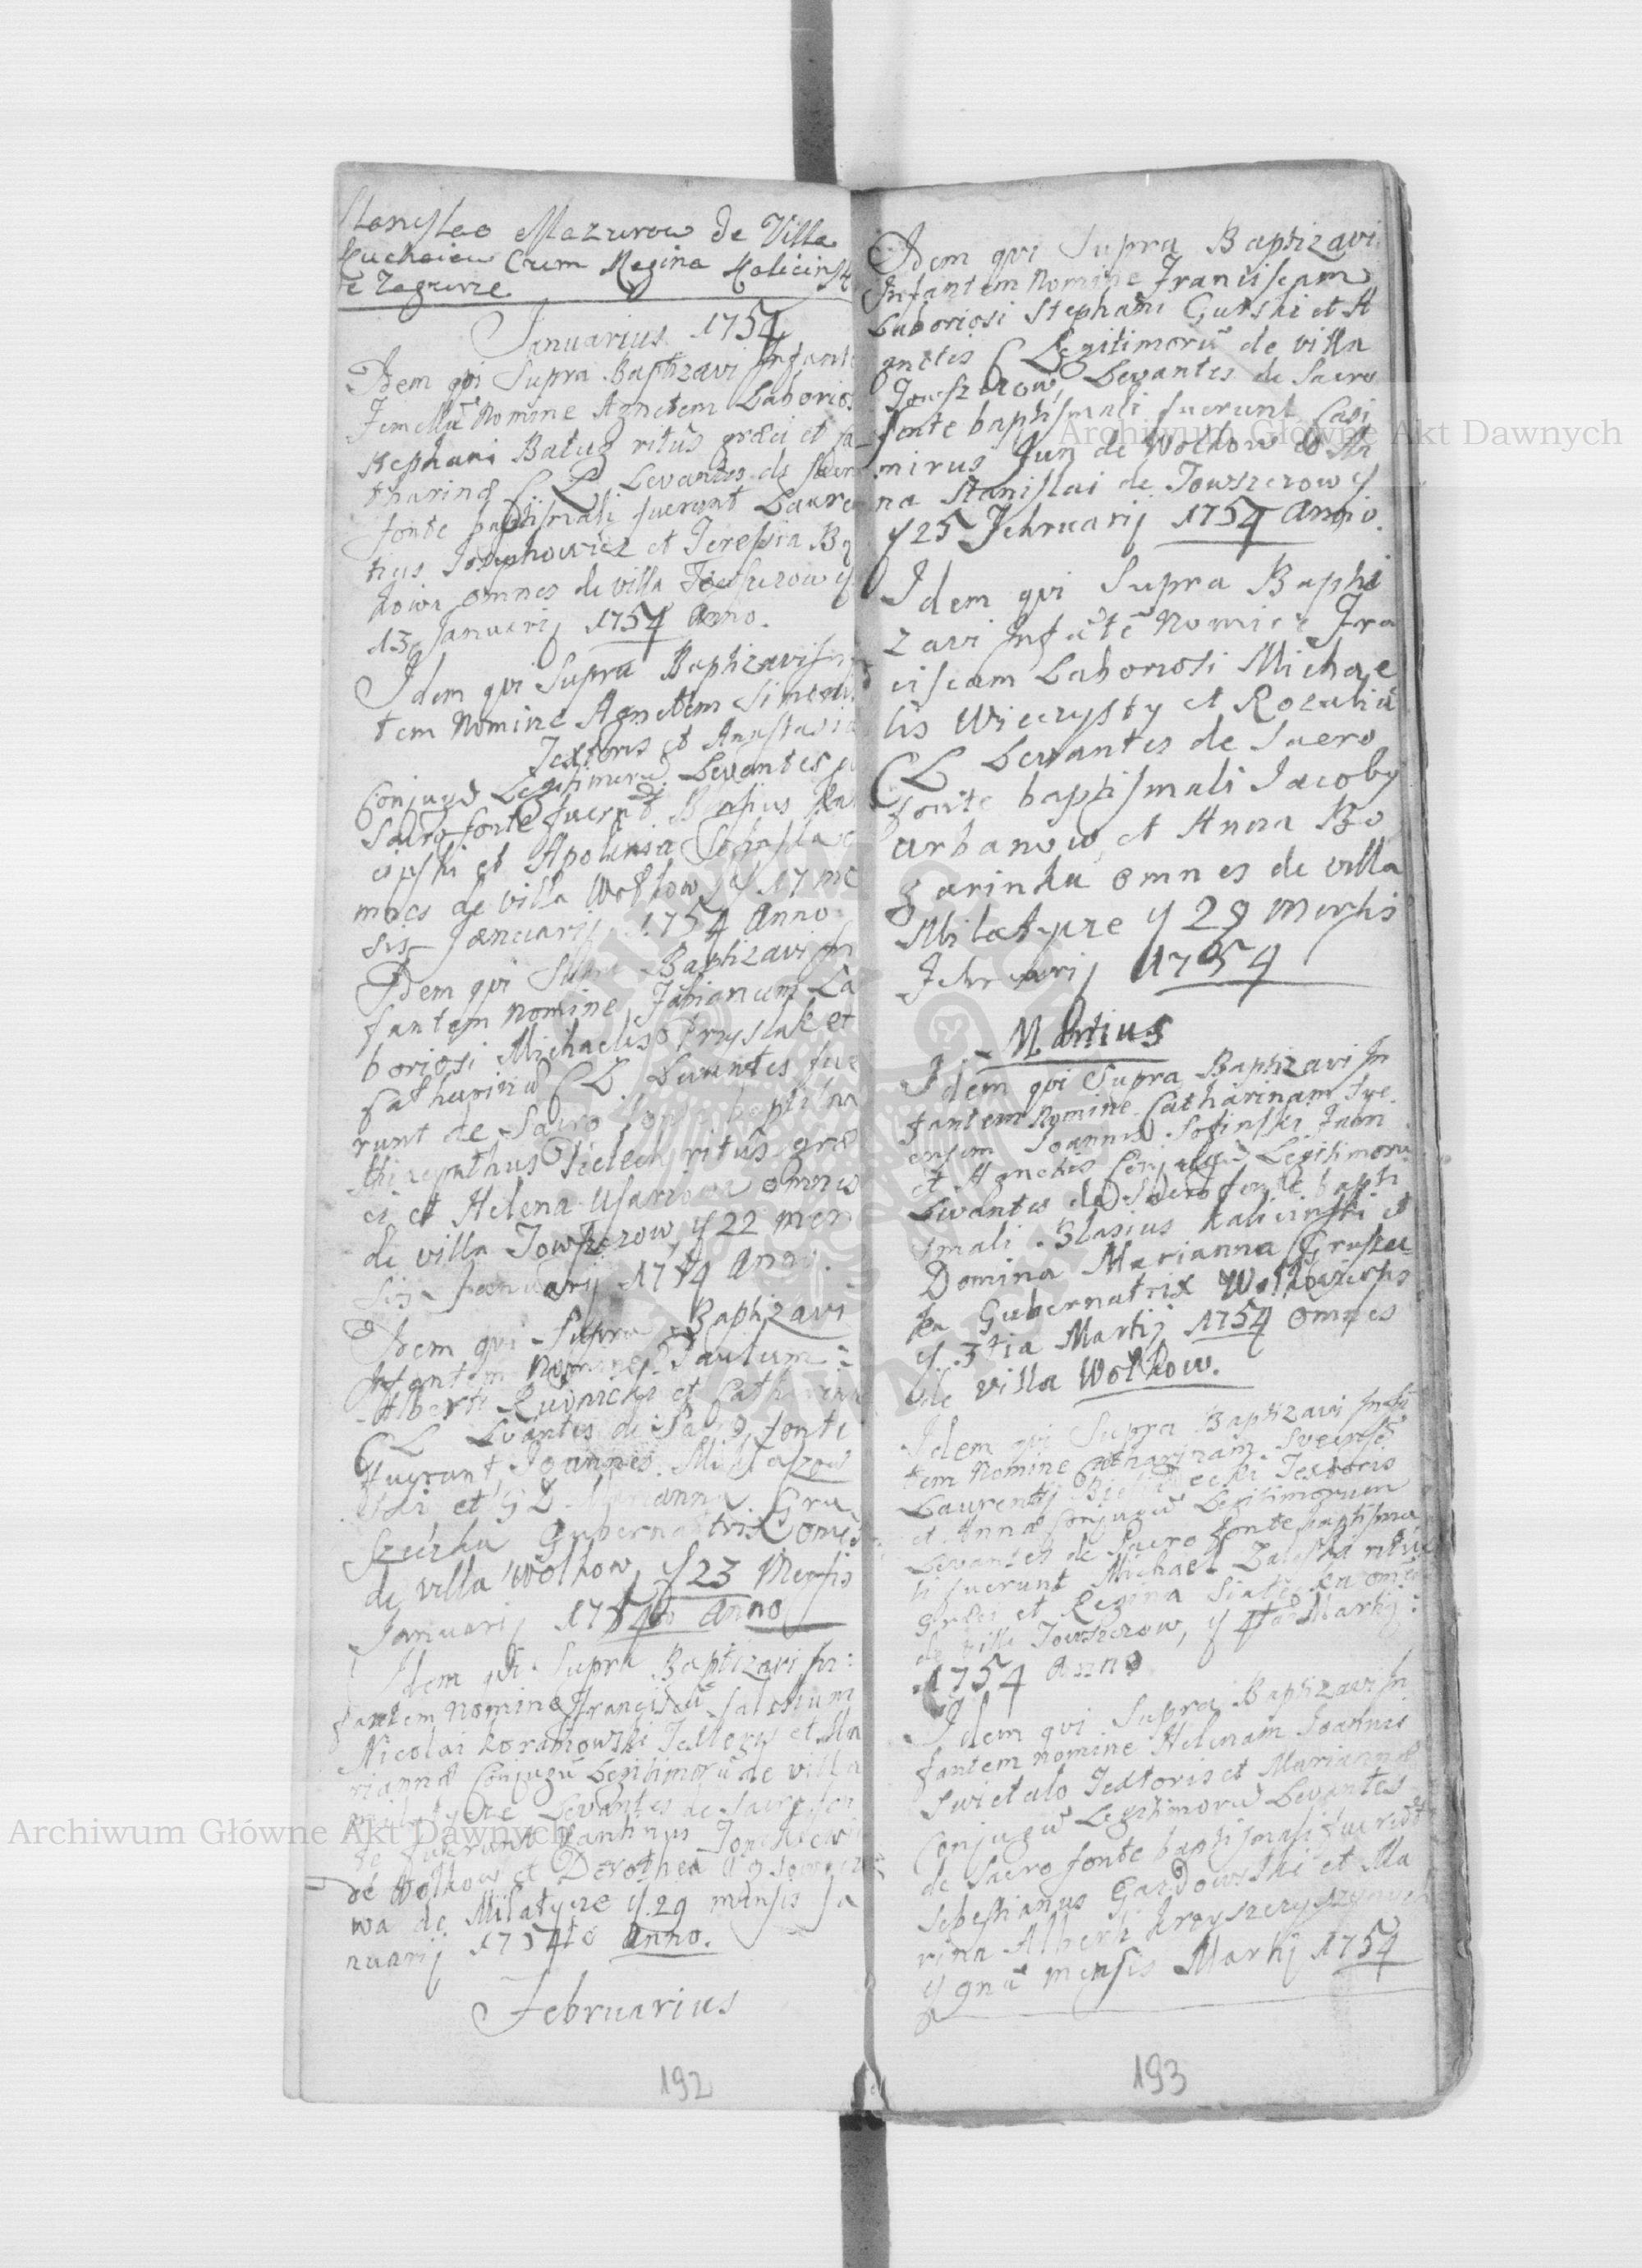 Stanislao Mazurow de Villa
Kuchaiew Cum Regina Kalicinsk
e Zagurze
Januarius 1754
Idem qvi Supra Baptizavi Infante
Femellũ Nomine Agnetem Laborios
Stephani Batug ritûs græci et Ca
tharinæ CL Levantes de Sacro
fonte baptismali fuerunt Lauren
tius Josephowicz et Teressia
omnes de villa Towszczow y
13 Januarij 1754 Anno.
Idem qvi Supra Baptizavi In
tem Nomine Agnetem Simeonis
Textoris et Anastasiæ
Conjugũ Legitimorũ Levantes
Sacro fonte fuerũt Blasius Kali
cijski et Apolinia
mnes de villa Wołkow y 17 me
sis Januarij 1754 Anno
Idem qvi Supra Baptizavi In
fantem nomine Fabianum La
boriosi Michaelis Pryslak et
Catharinæ CL Levantes fue
runt de Sacro fonte baptisma
li ritûs græ
ci et Helena omnes
de villa Towszczow y 22 Men
sis Januarij 1754 Anno.
Idem qvi Supra Baptizavi
Infantem Nomine Paulum
Alberti et Catharinæ
CL Levantes de Sacro fonte
fuerunt Joannes
ski et GD Marianna Gru
szecka Gubernatrix omnes
de villa Wołkow y 23 Mensis
Januarij 1754to Anno
Idem qvi Supra Baptizavi In:
fantem Nomine Franciscũ Salesium
Nicolai Koranowski Textoris et Ma
riannæ Conjugũ Legitimorũ de villa
Milatycze Levantes de Sacro fon
te fuerunt Martinus
de Wołkow et Dorothea
wa de Milatycze y 29 mensis Ja
nuarij 1754to Anno.
Februarius
192
Idem qvi Supra Baptizavi
Infantem Nomine Franciscam
Laboriosi Stephani Gurski et A
gnetis CLegitimorũ de villa
Towszczow, Levantes de Sacro
fonte baptismali fuerunt Casi
mirus Jun de Wołkow et An
na Stanislai de Towszczow y
y 25 Februarij 1754 Anno.
Idem qvi Supra Bapti
zavi Infãtẽ Nomine Fra
ciscam Laboriosi Michae
lis Wieczysty et Rozaliæ
CL Levantes de Sacro
fonte baptismali Jacoby
Urbanow, et Anna Bo
garinka omnes de villa
Milatycze y 29 Mensis
Februarij 1754
Martius
Idem qvi Supra Baptizavi In
fantem Nomine Catharinam Sve
censem Joannis Sosinski
et Agnetis Conjugũ Legitimorũ
Levantes de Sacro fonte bapti
smali Blasius Kalicinski et
Domina Marianna Grusze
ka Gubernatrix
y 3tia Martij 1754 omnes
de villa Wołkow.
Idem qvi Supra Baptizavi Infã
tem Nomine Catharinam Svecensẽ
Laurentij Textoris
et Annæ Conjugũ Legitimorum
Levantes de Sacro fonte baptisma
li fuerunt Michael Zaleski ritûs
græci et Regina omnes
de villa Towszczow, y 4ta Martij:
1754 Anno
Idem qvi Supra Baptizavi In
fantem nomine Helenam Joannis
Swietalo Textoris et Mariannæ
Conjugũ Legitimorũ Levantes
de Sacro fonte baptismali fuerũt
Sebestianus Gazdowski et Ma
rina Alberti
y 9nã mensis Martij 1754
193
Archiwum Główne Akt Dawnych
Archiwum Główne Akt Dawnych